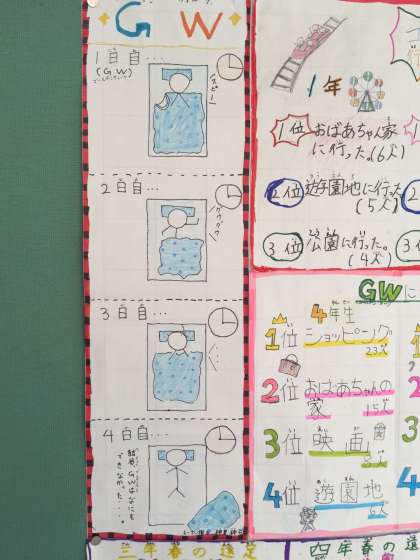 GW
1日目…
(GW)
2日目…
グウグウ
3日目…
4日目…
結局GWなにも
できなかった…。
1年
1位 おばあちゃん家
に行った。(6人)
2位 遊園地に行った
(5人)
3位 公園に行った。
(4人)
GWに
4年生
1位 ショッピング
23人
2位 おばあちゃんの
家 15人
3位 映画
4位 遊園地
6人
年春の遠足
四年春の遠